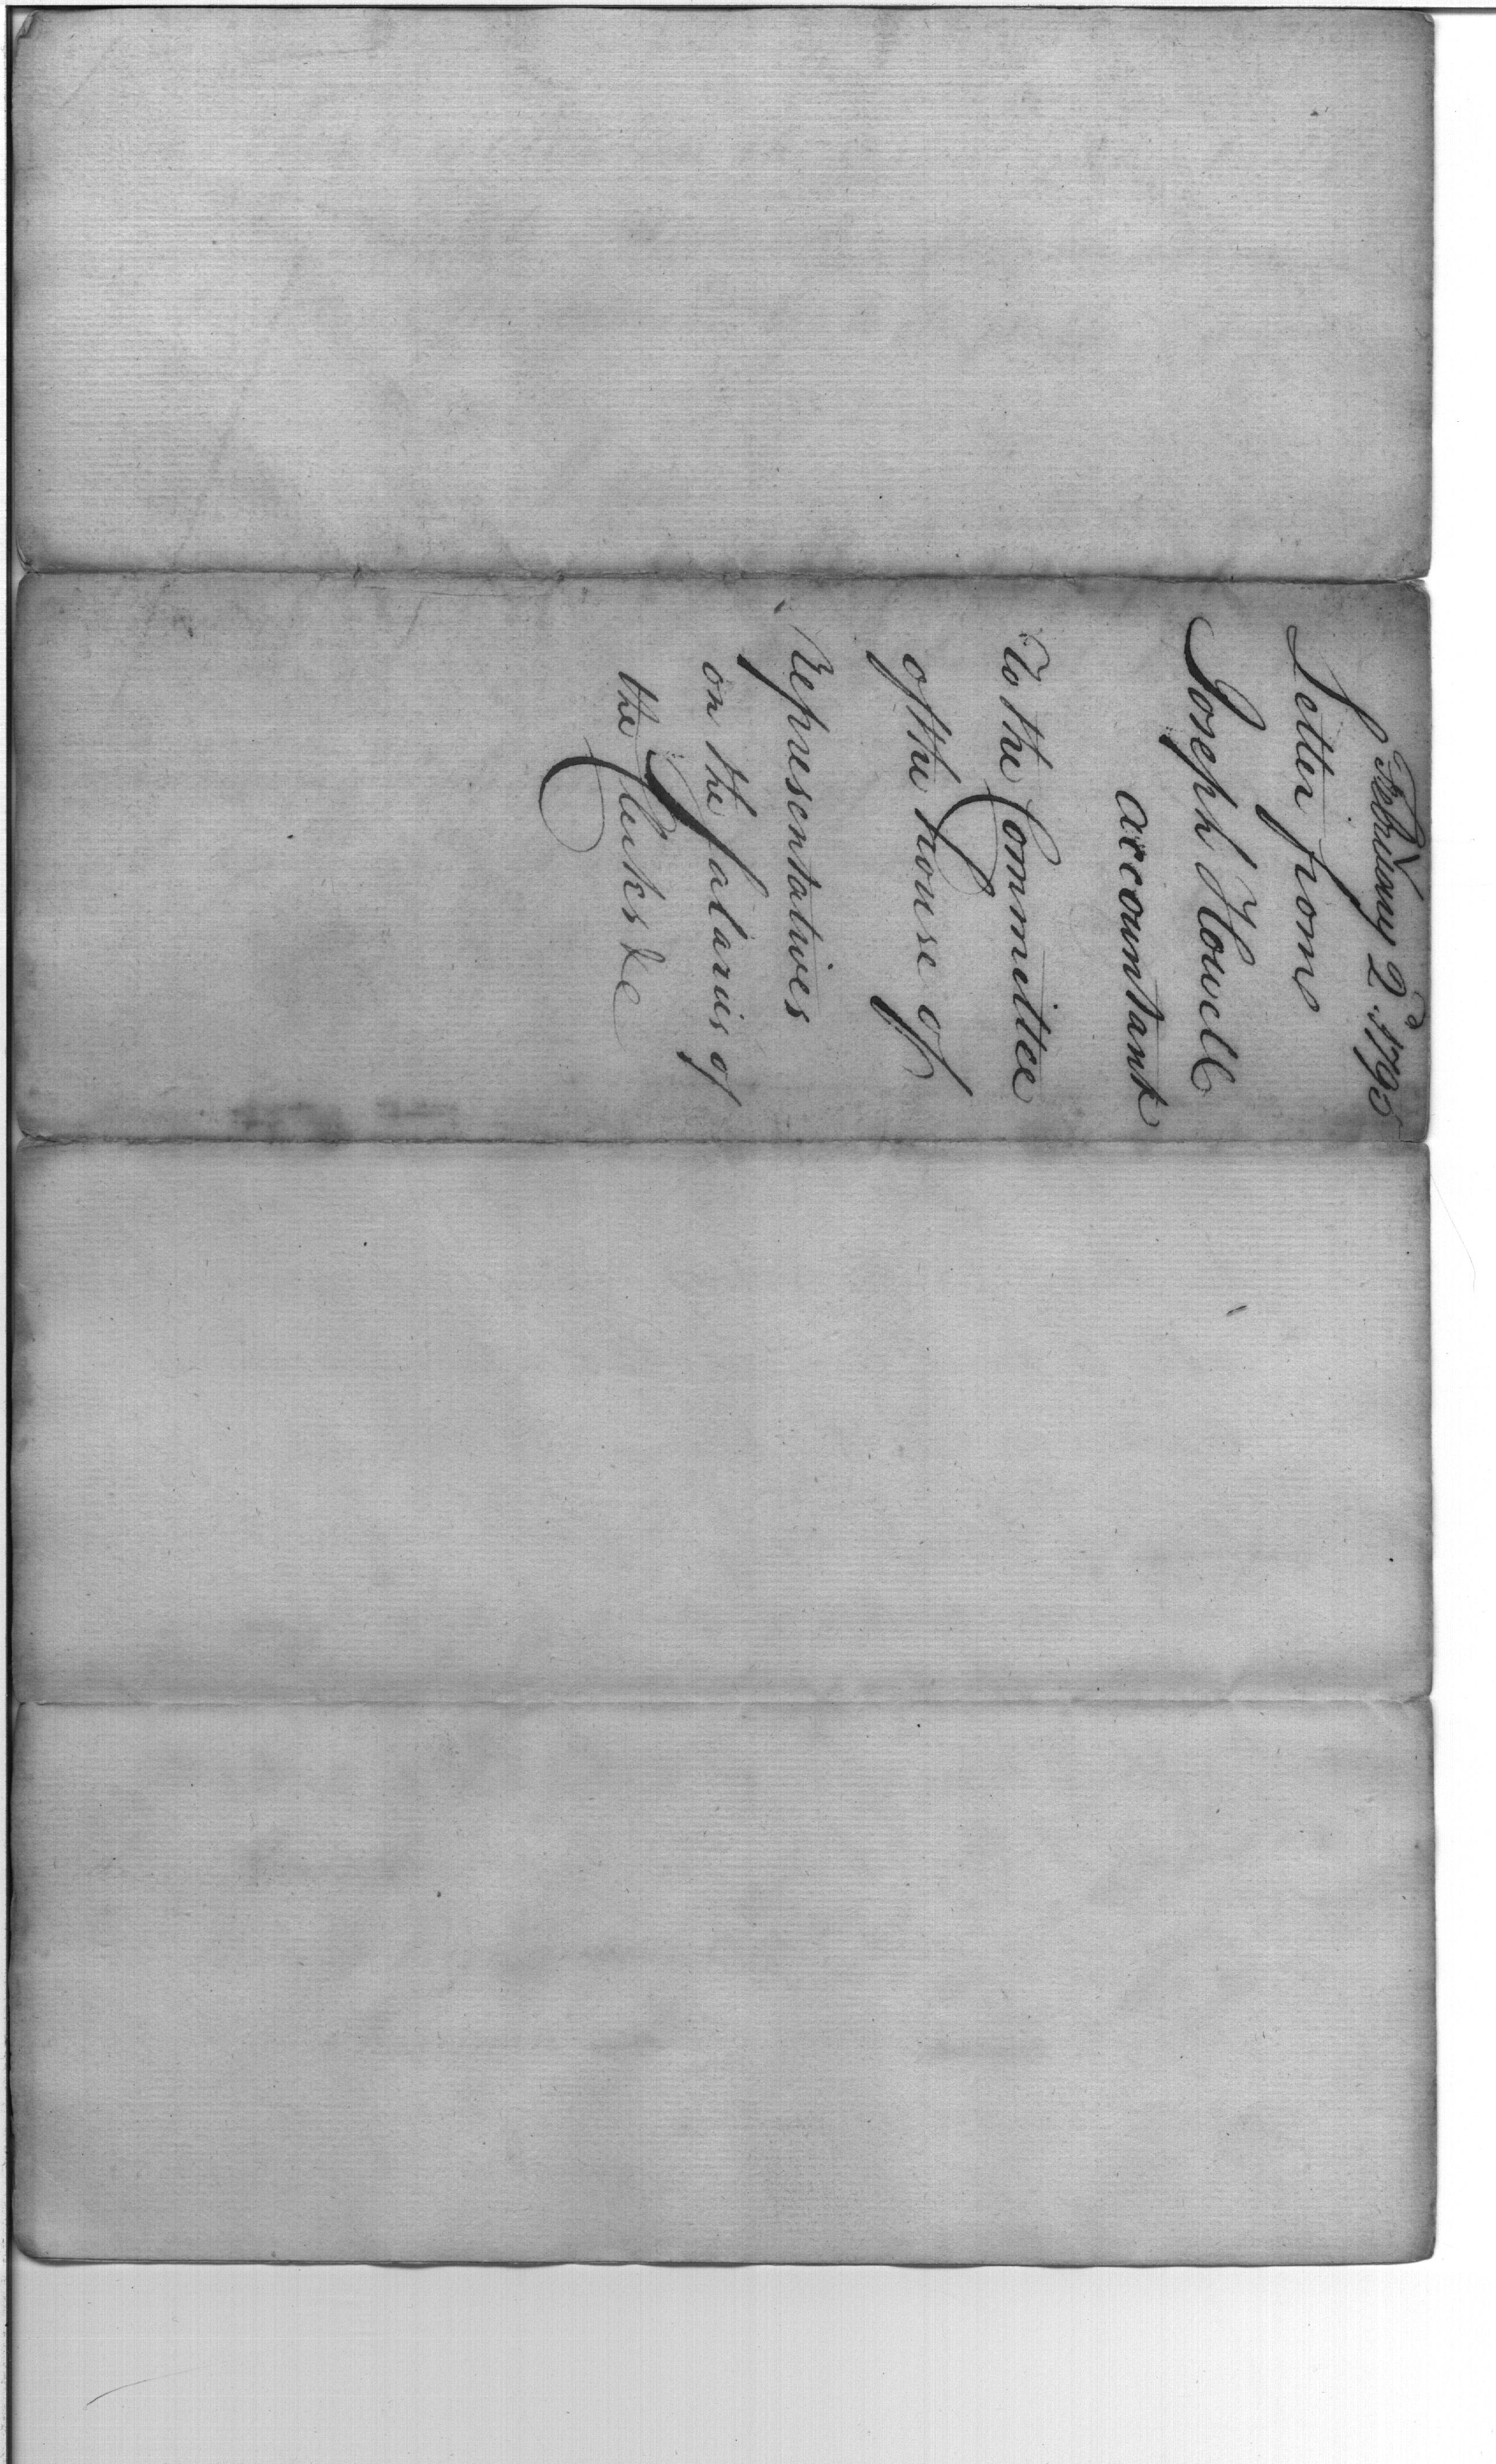 February 2d. 1795
Letter from
Joseph Howell
accountant
To the Committee
of the house of
Representatives
on the salaries of
the Clerks &c